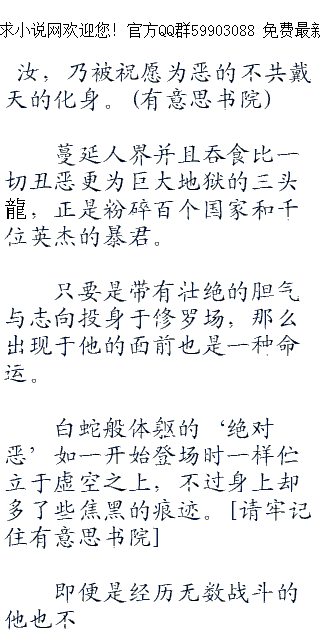 求小说网欢迎您! 官方QQ群59903088 免费最新
汝，乃被祝愿为恶的不共戴
天的化身。(有意思书院)
蔓延人界并且吞食比一
切丑恶更为巨大地狱的三头
龍，正是粉碎百个国家和千
位英杰的暴君。
只要是带有壮绝的胆气
与志向投身于修罗场，那么
出现于他的面前也是一种命
运。
白蛇般体躯的‘绝对
恶’如一开始登场时一样伫
立于虚空之上，不过身上却
多了些焦黑的痕迹。[请牢记
住有意思书院]
即便是经历无数战斗的
他也不